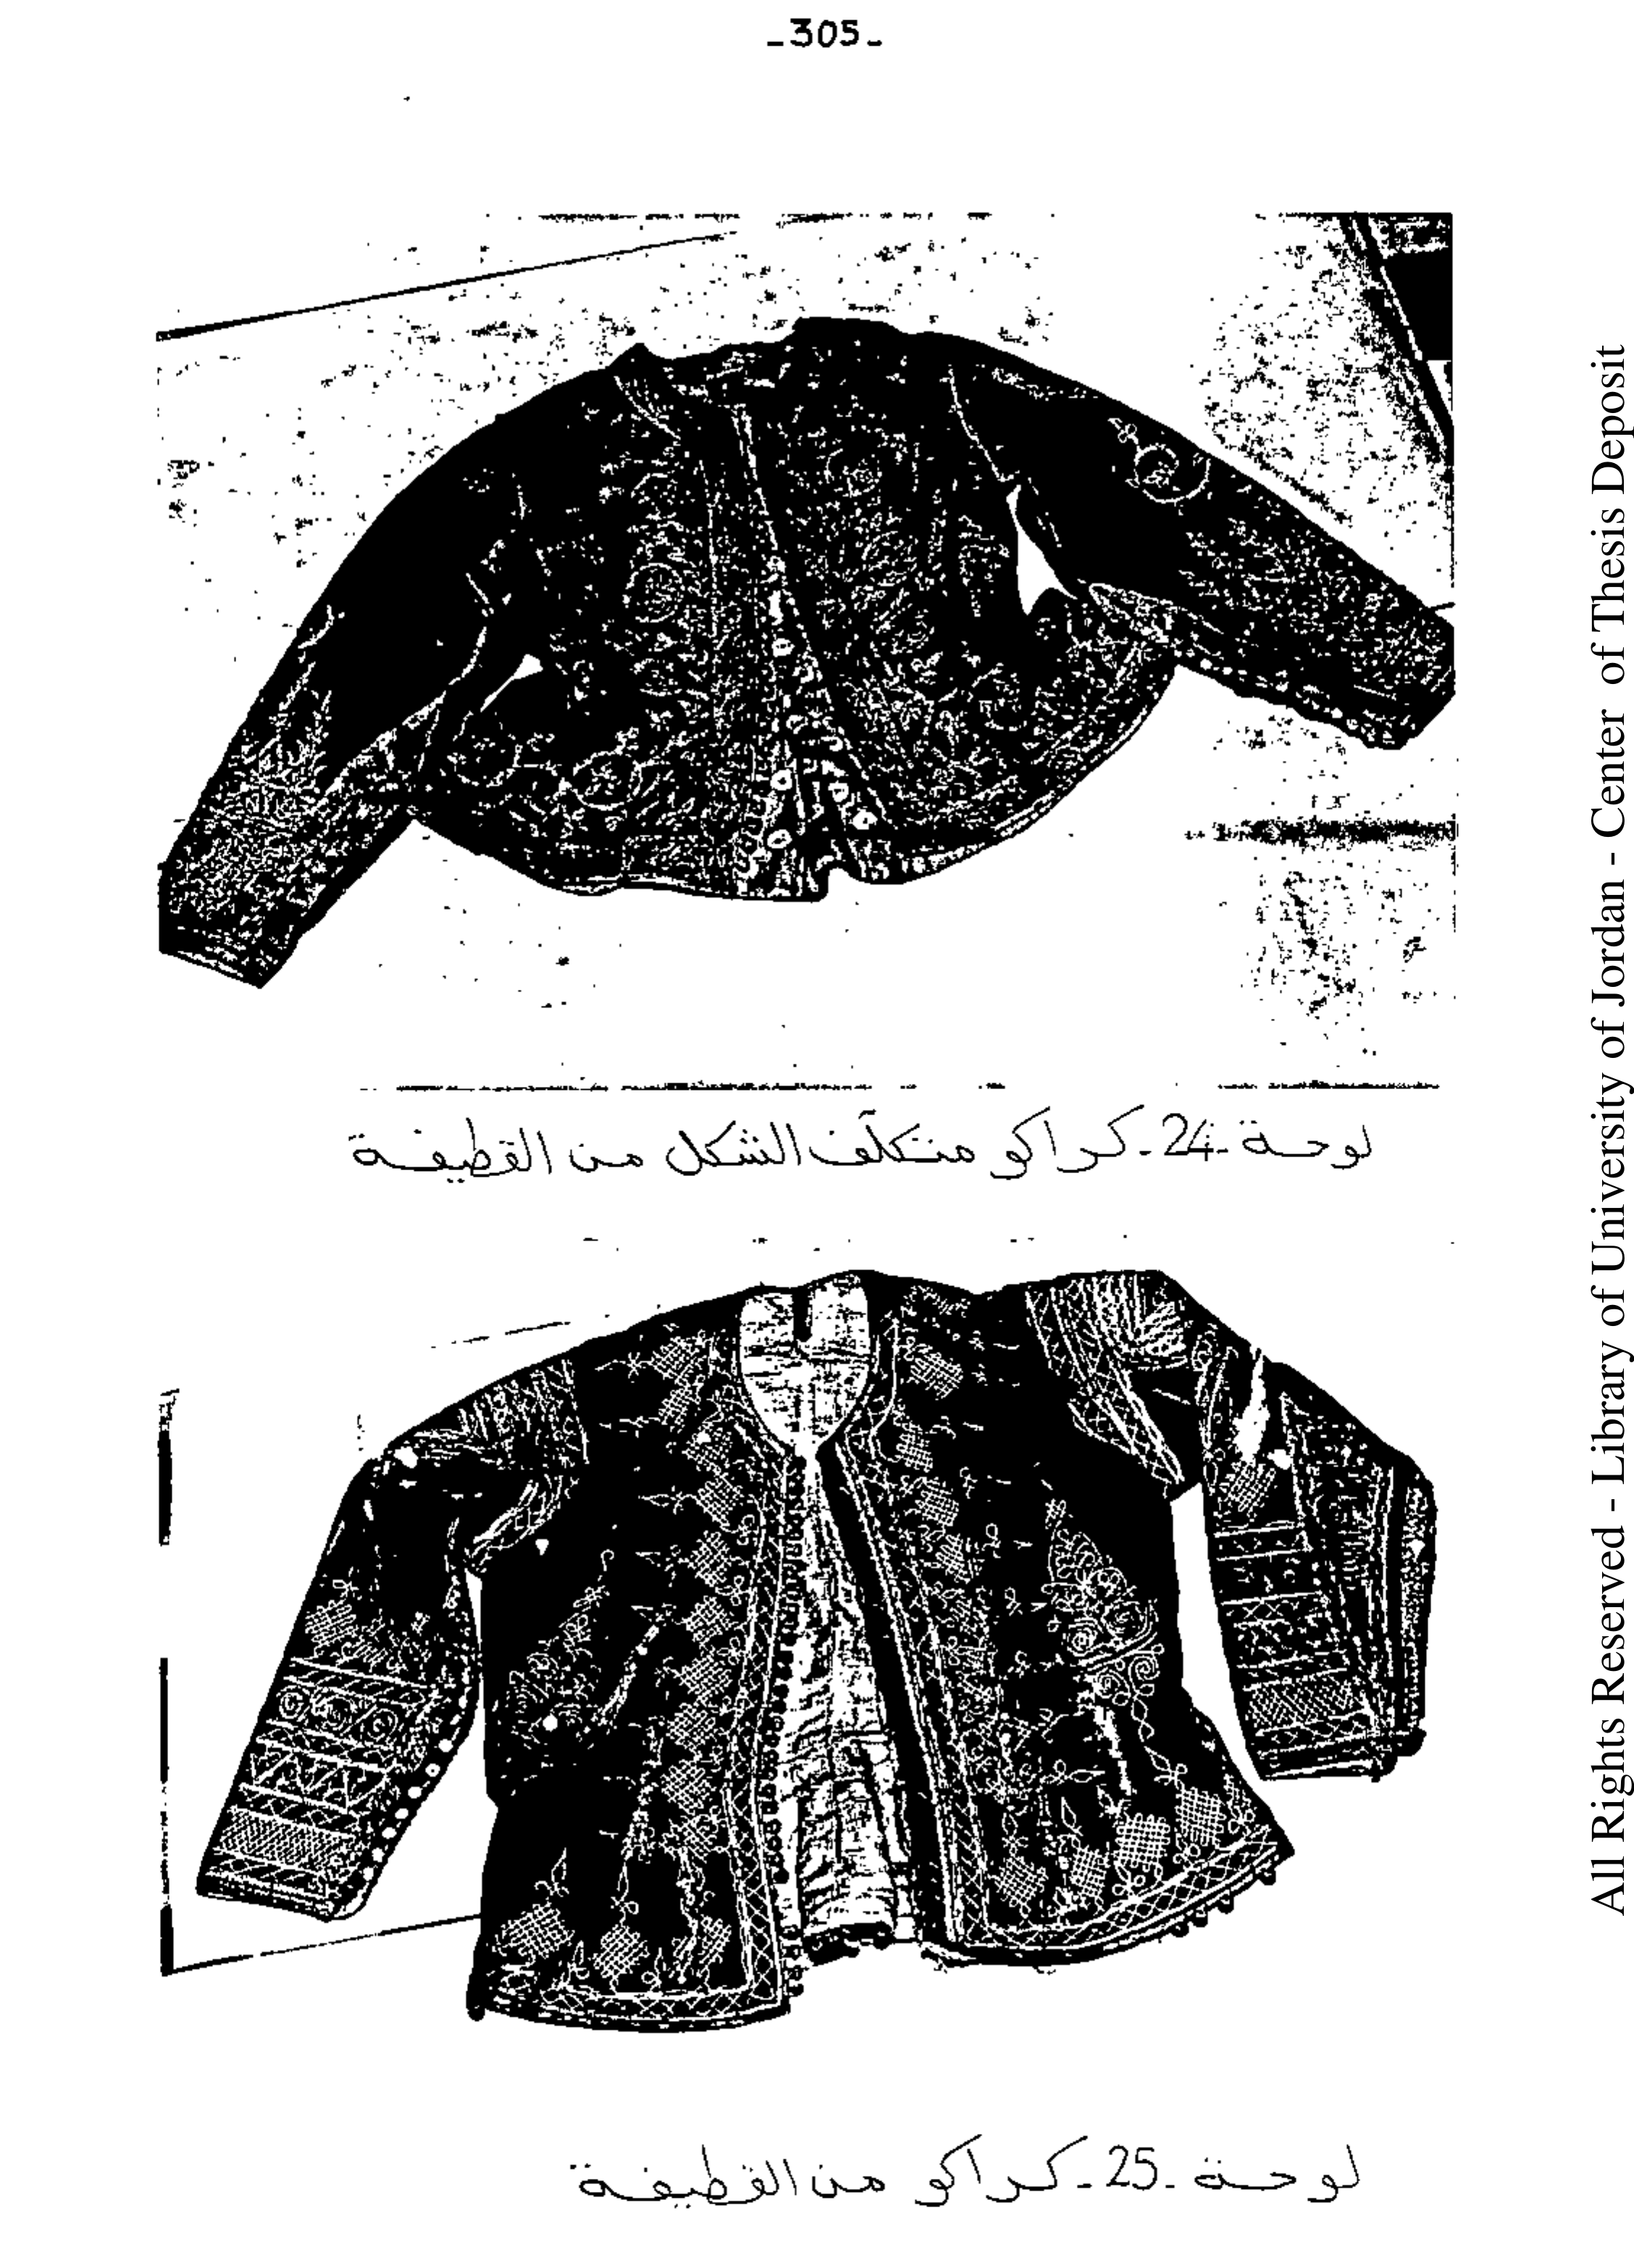 _305_
لوحة -24- كراكو متكلّف الشكل من القطيفة
لوحة -25- كراكو من القطيفة
All Rights Reserved - Library of University of Jordan - Center of Thesis Deposit